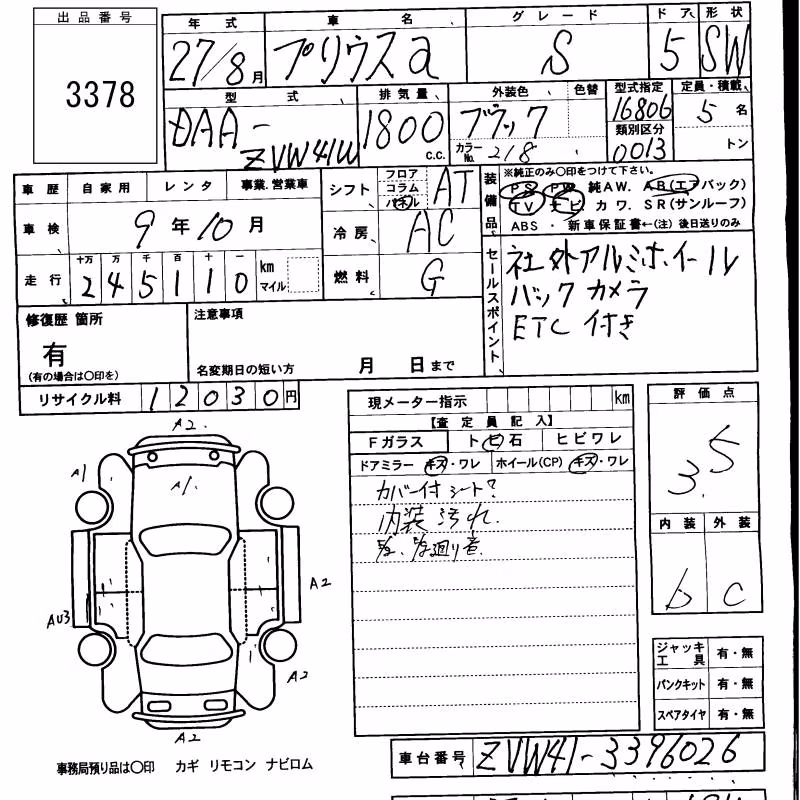 出品番号
3378
年式 車名 グレード ドア 形状
27/8月 プリウスα S 5 SW
型式 排気量 外装色 色替 型式指定 定員・積載
DAA-
ZVW41W
1800 c.c.
ブラック
カラーNo. 218
16806
類別区分
0013
5 名
トン
車歴 自家用 レンタ 事業.営業車
車検 9年10月
走行 十万 万 千 百 十 一
245110 km マイル
シフト フロア コラム パネル AT
冷房 AC
燃料 G
装備品
※純正のみ〇印をつけて下さい。
PS PW 純AW. AB(エアバック)
TV ナビ カワ. SR(サンルーフ)
ABS ・ 新車保証書←(注)後日送りのみ
セールスポイント
社外アルミホイール
バックカメラ
ETC 付き
修復歴 箇所
有
(有の場合は〇印を)
注意事項
名変期日の短い方 月 日まで
リサイクル料 12030円
現メーター指示 km
【査定員記入】
Fガラス トビ石 ヒビワレ
ドアミラー キズ・ワレ ホイール(CP) キズ・ワレ
カバー付シート?
内装汚れ.
評価点
3.5
内装 外装
b c
A2.
A1
A1.
AU3
A2
A2
A2
ジャッキ工具 有・無
パンクキット 有・無
スペアタイヤ 有・無
事務局預り品は〇印 カギ リモコン ナビロム
車台番号 ZVW41-3396026